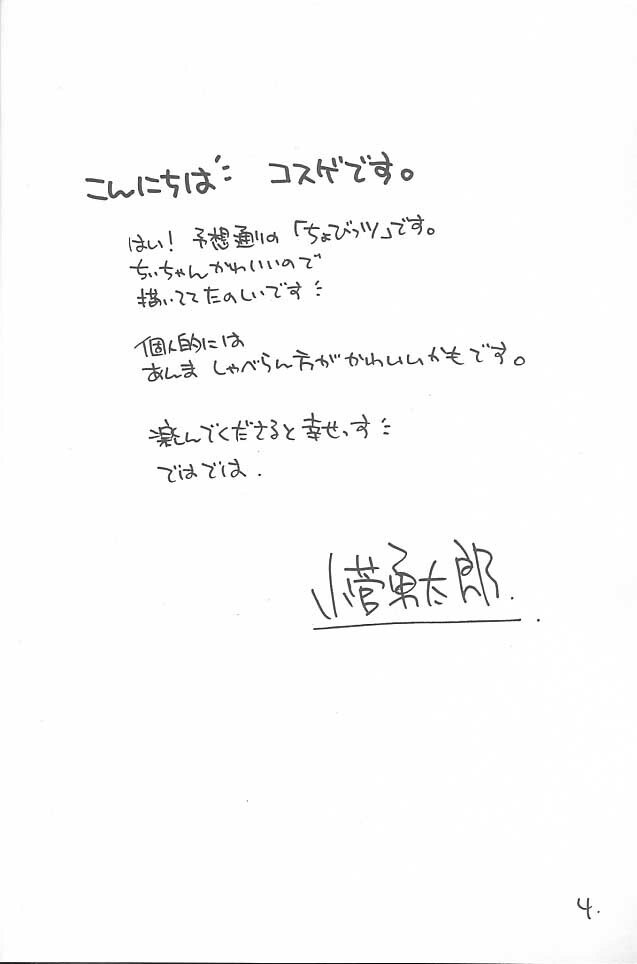 こんにちは コスゲです。
はい! 予想通りの「ちょびっツ」です。
ちぃちゃんかわいいので
描いててたのしいです
個人的には
あんま しゃべらん方がかわいいかもです。
楽しんでくださると幸せっす
ではでは.
小菅勇太郎.
4.